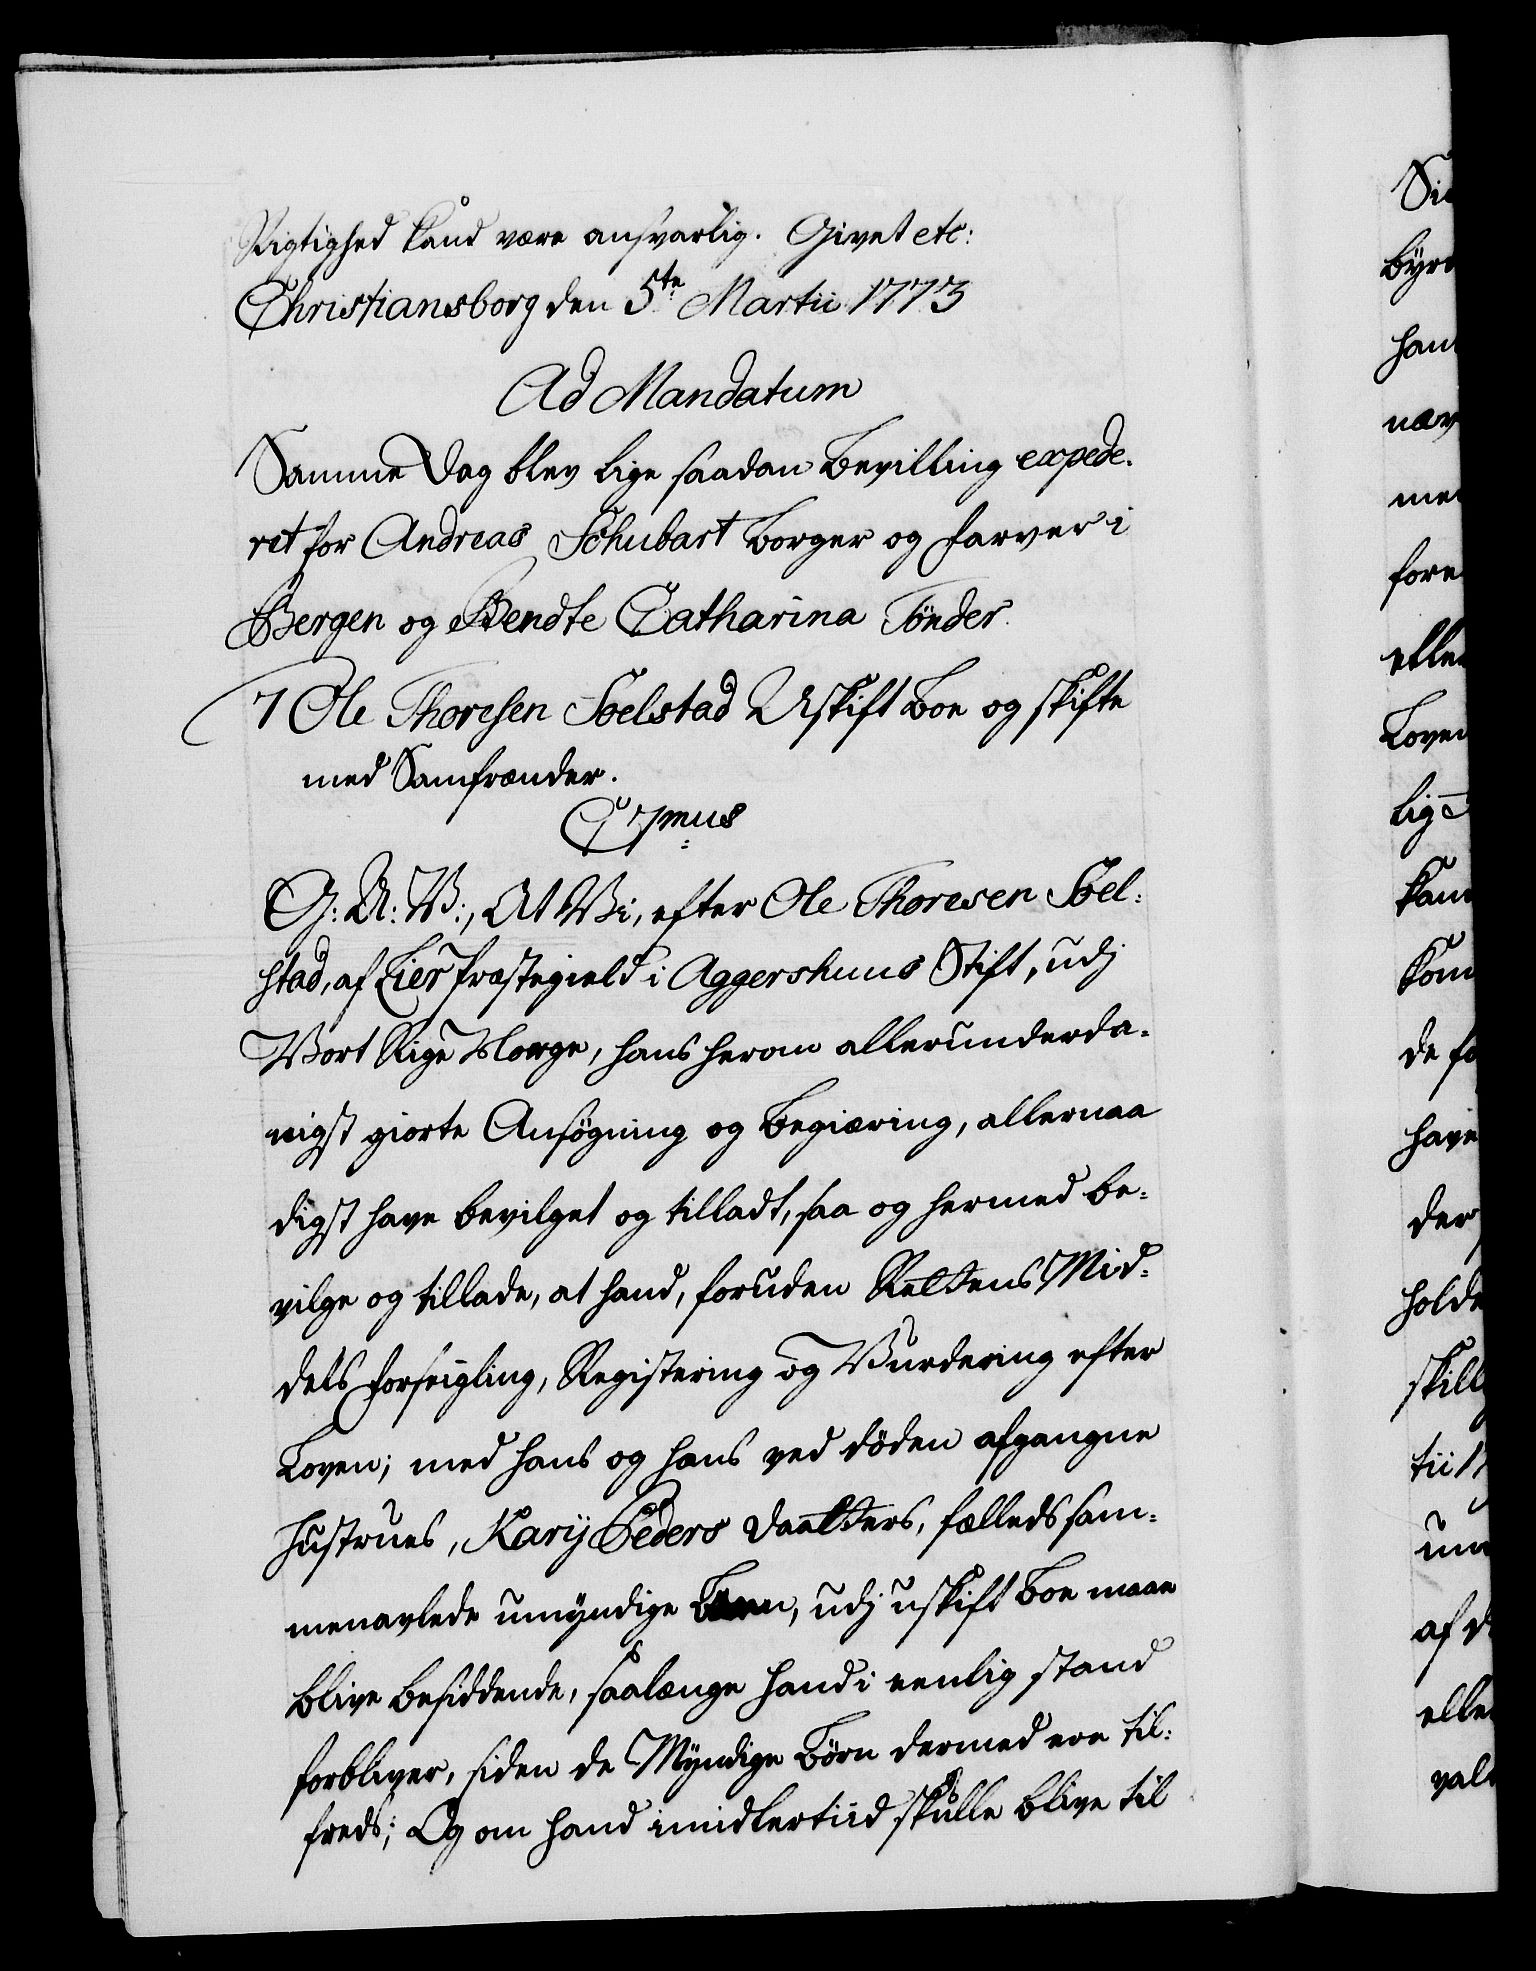 Rigtighed kand være ansvarlig. Givet etc:
Christiansborg den 5te Martii 1773
Ad Mandatum
Samme Dag blev lige saadan Bevilling expede.
ret for Andreas Schubart Borger og farver i
Bergen og Bendte Catharina Tönder.
7 Ole Thoresen Soelstad Uskift Boe og skifte
med Samfrænder.
C 7mus
G: A: V:, At Vi, efter Ole Thoresen Soel:
stad, af Lier Præstegield i Aggershuus Stift, udj
Vort Rige Norge, hans herom allerunderda-
nigst giorte Ansøgning og Begiæring, allernaa
digst have bevilget og tilladt, saa og hermed be-
vilge og tillade, at hand, foruden Rettens Mid-
dels Forseigling, Registering og Vurdering efter
Loven; med hans og hans ved döden afgangne
Hustrues, Karij Peders Daatters, fælleds sam-
menavlede umyndige Børn, udj uskift Boe maae
blive besiddende, saalænge hand i eenlig stand
forbliver, siden de Myndige Börn dermed ere til-
freds; Og om hand imidlertiid skulle blive til
Sie
byrd
hans
nær
med
fore
eller
Loven
lig
kand
kom
de fo
have
der
holde
skill
tii 17
um
af d
eller
val